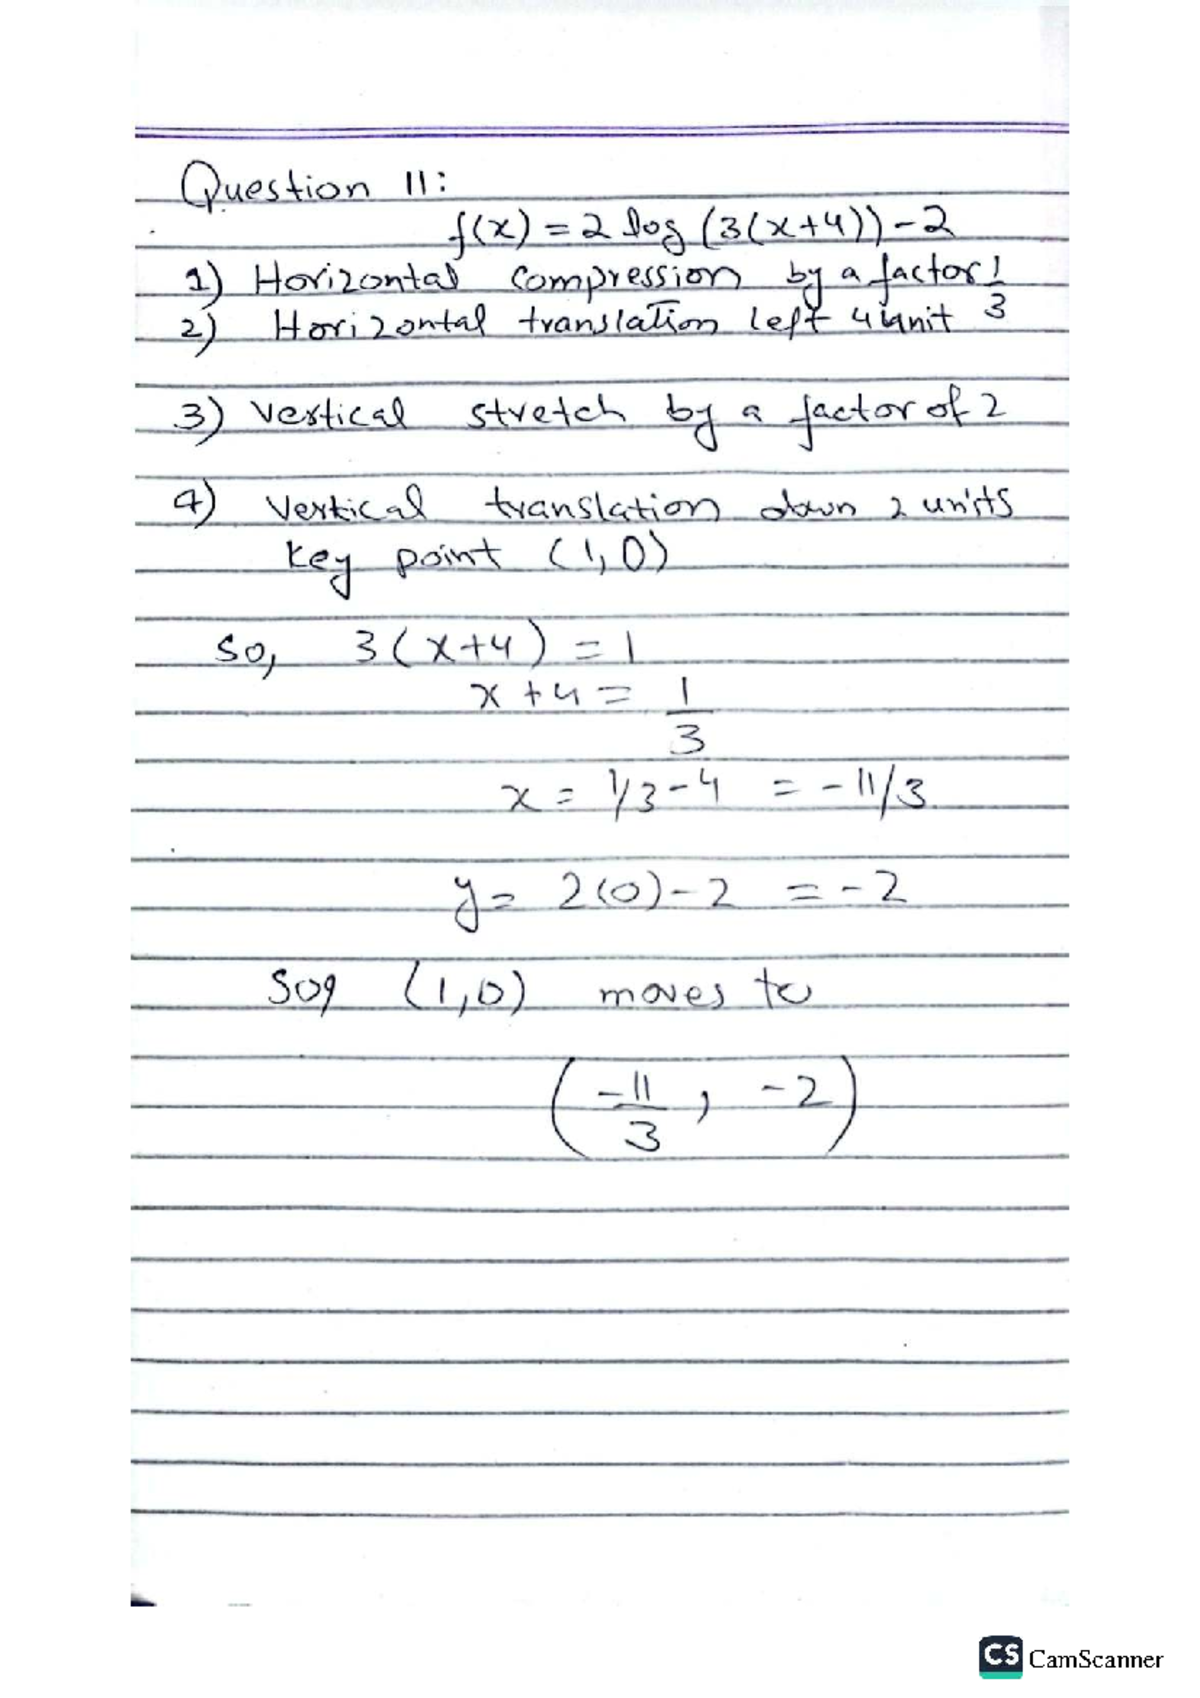 Question 11:
f(x) = 2 log (3(x+4)) - 2
1) Horizontal compression by a factor 1/3
2) Horizontal translation left 4 unit
3) Vertical stretch by a factor of 2
4) Vertical translation down 2 units
key point (1, 0)
So, 3(x+4) = 1
x + 4 = 1/3
x = 1/3 - 4 = -11/3
y = 2(0) - 2 = -2
So, (1,0) moves to
(-11/3, -2)
CS CamScanner